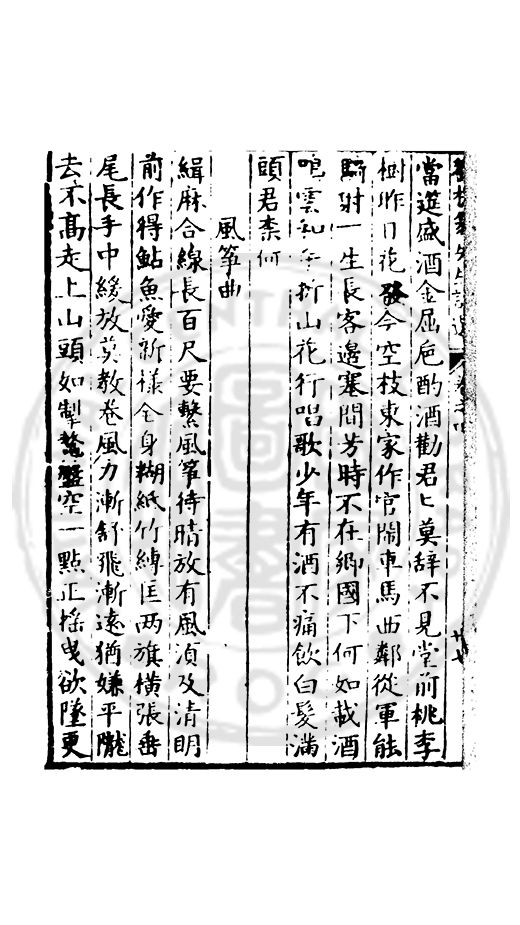 當筵盛酒金屈卮酌酒勸君匕莫辞不見堂前桃李
樹昨日花發今空枝東家作官鬧車馬西鄰從軍能
騎射一生長客邊塞間芳時不在鄉國下何如載酒
鳴雲和年折山花行唱歌少年有酒不痛飲白髮滿
頭君柰何
風箏曲
緝麻合線長百尺要繫風箏待晴放有風湏及清明
前作得鮎魚愛新樣全身糊紙竹縳匡兩旗橫張垂
尾長手中緩放莫教卷風力漸舒飛漸遠猶嫌平隴
去不高走上山頭如掣鰲盤空一點正搖曳欲墮更